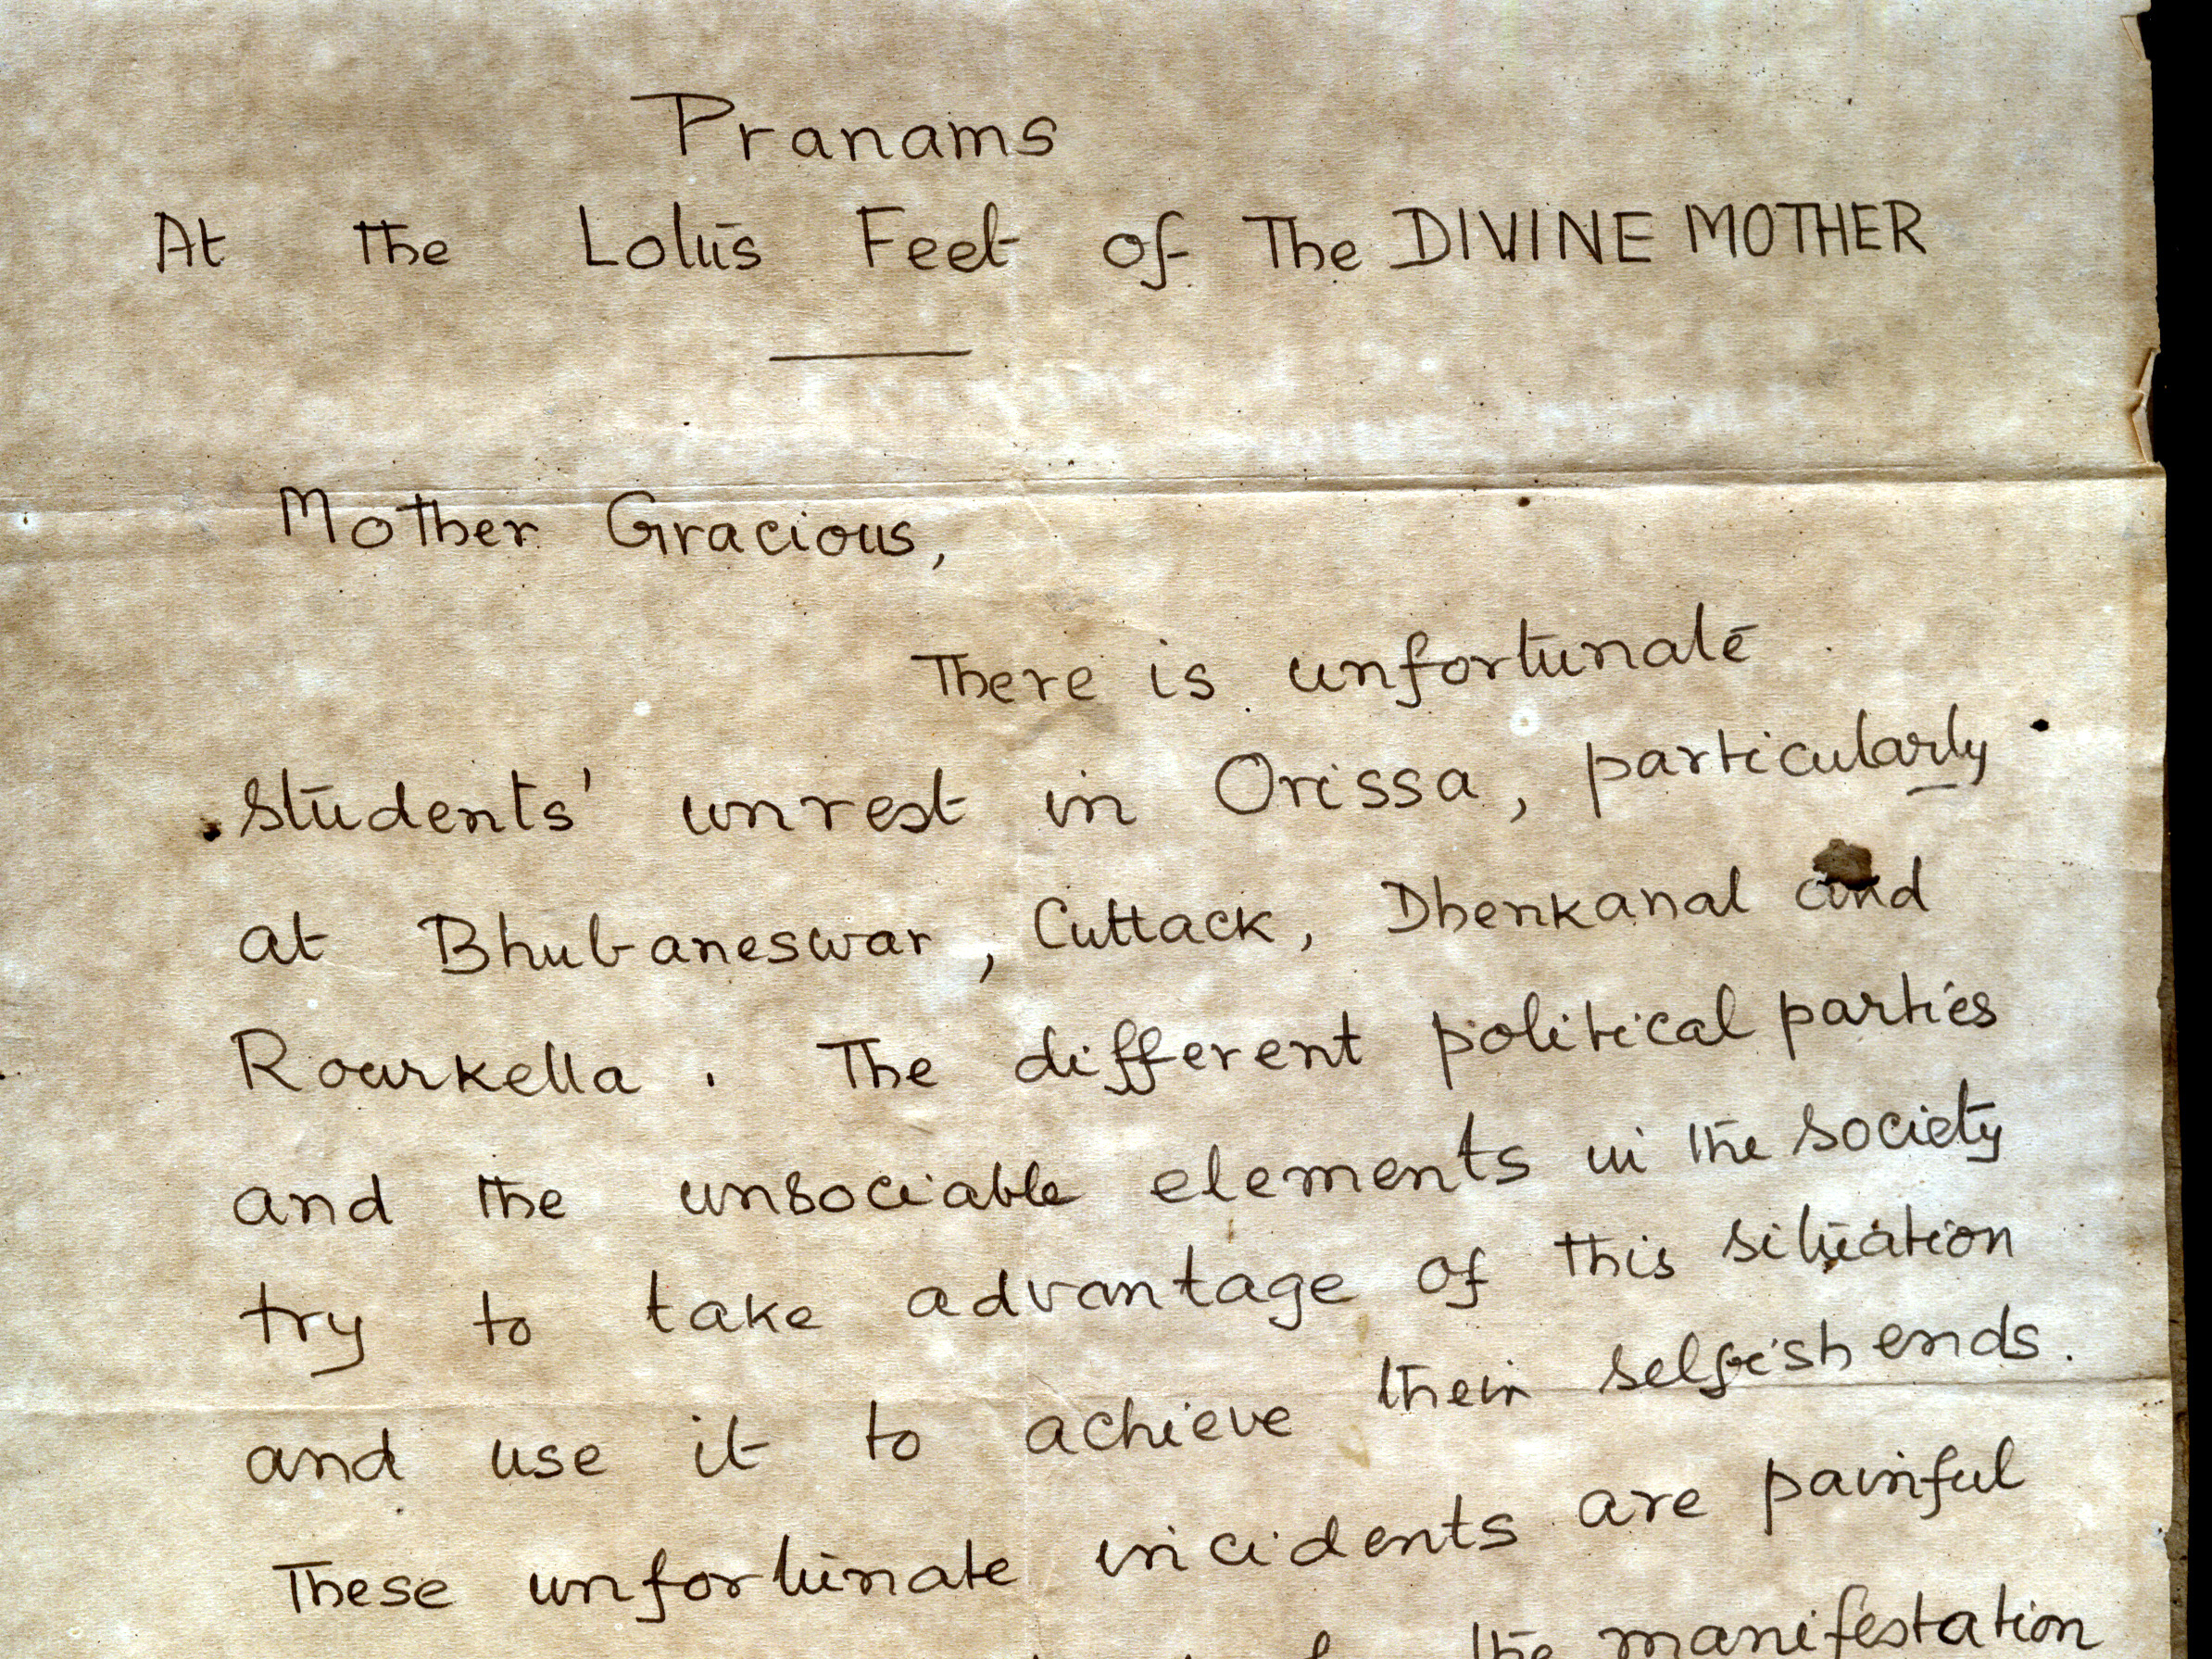 Pranams
At the Lotus Feet of The DIVINE MOTHER
Mother Gracious,
There is unfortunate
students' unrest in Orissa, particularly
at Bhubaneswar, Cuttack, Dhenkanal and
Rourkella. The different political parties
and the unsociable elements in the society
try to take advantage of this situation
and use it to achieve their selfish ends.
These unfortunate incidents are painful
the manifestation